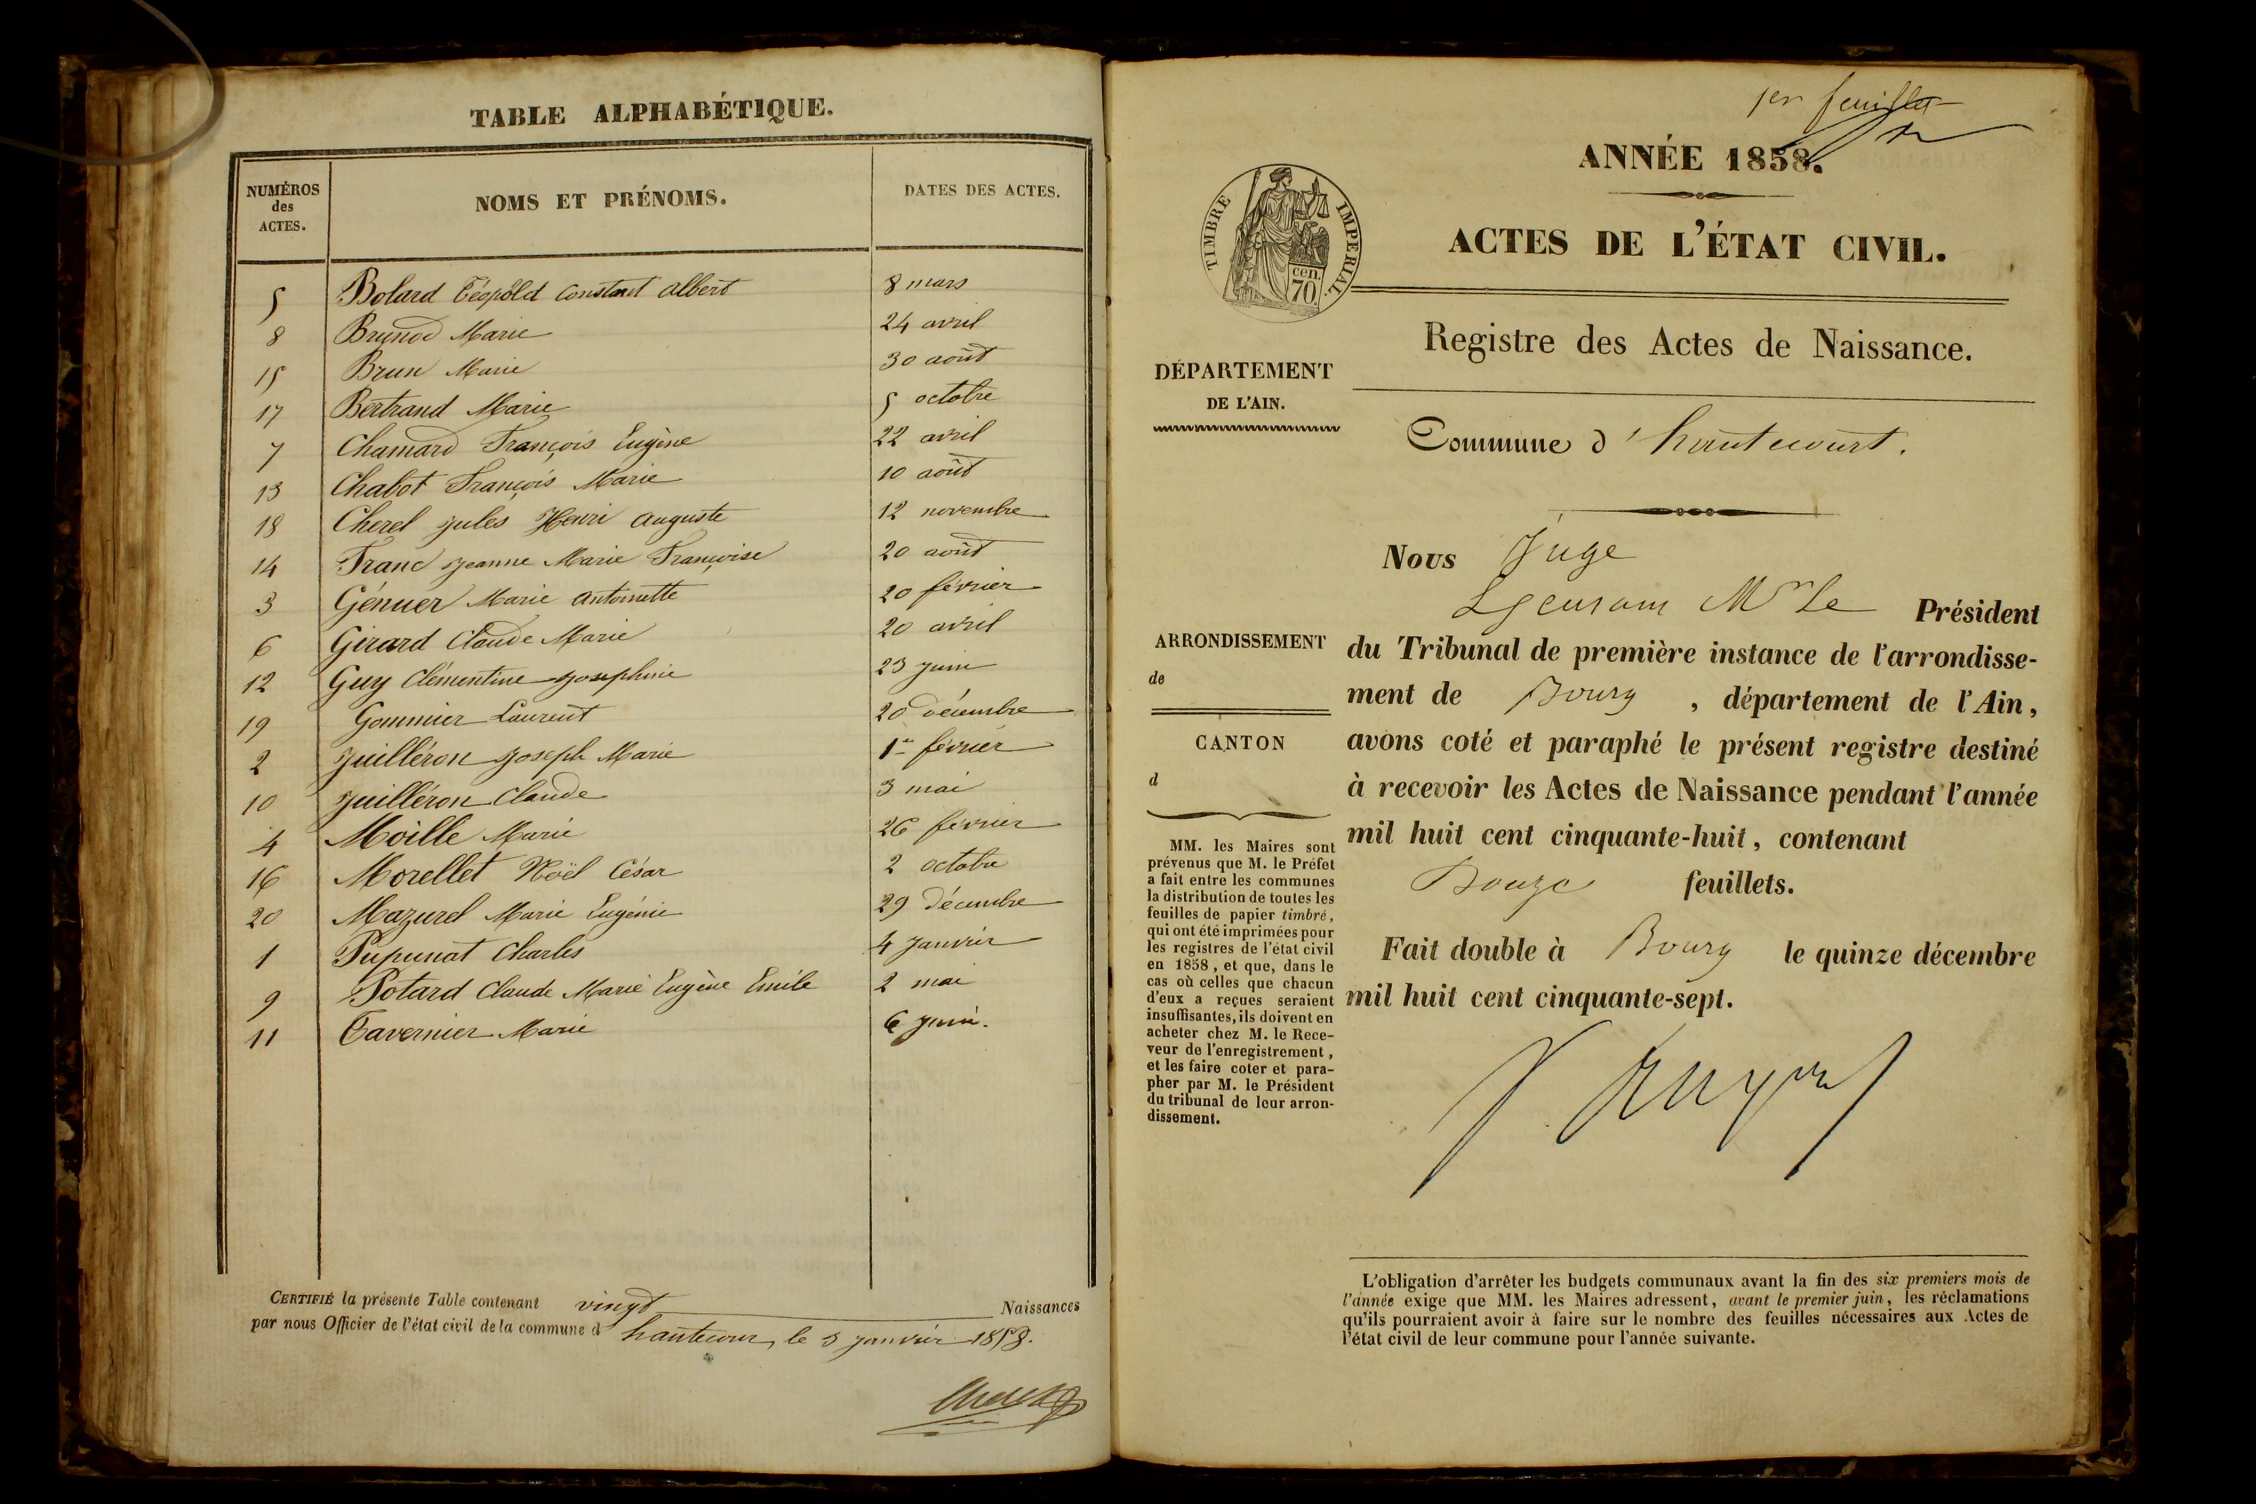 TABLE ALPHABÉTIQUE.
NUMÉROS des ACTES.
NOMS ET PRÉNOMS.
DATES DES ACTES.
5 Bolard Léopold Constant Albert 8 mars
8 Brunod Marie 24 avril
15 Brun Marie 30 août
17 Bertrand Marie 5 octobre
7 Chamard François Eugène 22 avril
13 Chabot François Marie 10 août
18 Cherel Jules Henri Auguste 12 novembre
14 Franc Jeanne Marie Françoise 20 août
3 Génuer Marie Antoinette 20 février
6 Girard Claude Marie 20 avril
12 Guy Clémentine Josephine 23 juin
19 Gommier Laurent 20 décembre
2 Juilléron Joseph Marie 1er février
10 Juilléron Claude 3 mai
4 Moille Marie 26 février
16 Morellet Noël César 2 octobre
20 Mazurel Marie Eugénie 29 décembre
1 Pupunat Charles 4 janvier
9 Potard Claude Marie Eugène Emile 2 mai
11 Tavernier Marie 6 juin.
CERTIFIÉ la présente Table contenant vingt Naissances
par nous Officier de l'état civil de la commune d hautecour, le 3 janvier 1858.
1er feuillet
ANNÉE 1858.
TIMBRE IMPERIAL.
cen.
70.
ACTES DE L'ÉTAT CIVIL.
Registre des Actes de Naissance.
DÉPARTEMENT
DE L'AIN.
Commune d'hautecourt.
Nous Juge
Mr le Président
du Tribunal de première instance de l'arrondisse-
ment de Bourg, département de l'Ain,
avons coté et paraphé le présent registre destiné
à recevoir les Actes de Naissance pendant l'année
mil huit cent cinquante-huit, contenant
Douze feuillets.
Fait double à Bourg le quinze décembre
mil huit cent cinquante-sept.
ARRONDISSEMENT
de
CANTON
d
MM. les Maires sont
prévenus que M. le Préfet
a fait entre les communes
la distribution de toutes les
feuilles de papier timbré,
qui ont été imprimées pour
les registres de l'état civil
en 1858, et que, dans le
cas où celles que chacun
d'eux a reçues seraient
insuffisantes, ils doivent en
acheter chez M. le Rece-
veur de l'enregistrement,
et les faire coter et para-
pher par M. le Président
du tribunal de leur arron-
dissement.
L'obligation d'arrêter les budgets communaux avant la fin des six premiers mois de
l'année exige que MM. les Maires adressent, avant le premier juin, les réclamations
qu'ils pourraient avoir à faire sur le nombre des feuilles nécessaires aux Actes de
l'état civil de leur commune pour l'année suivante.